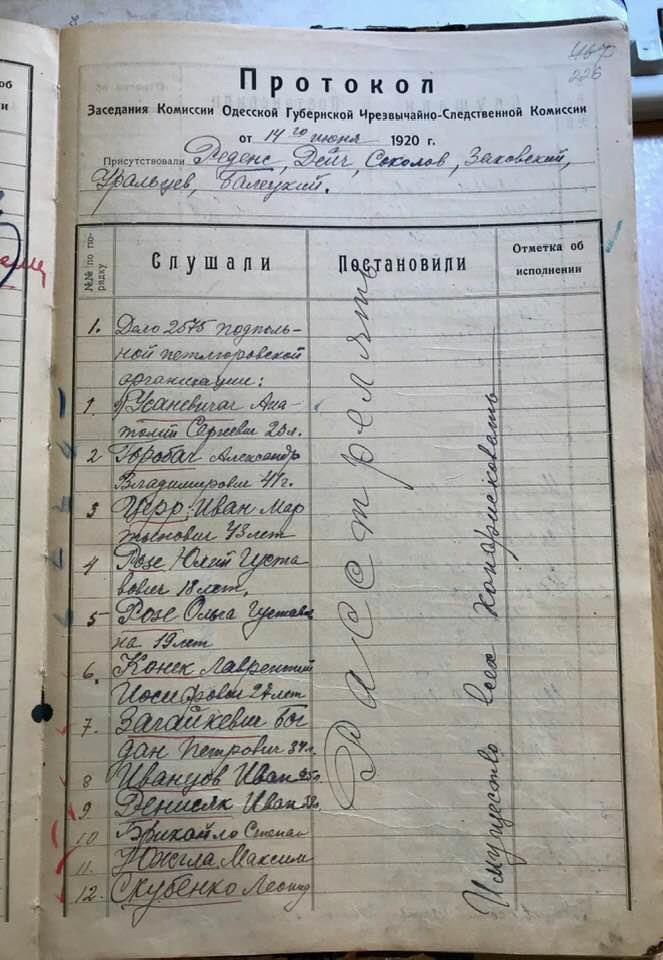 467
226
Протокол
Заседания Комиссии Одесской Губернской Чрезвычайно-Следственной Комиссии
от 14го июня 1920 г.
Присутствовали Реденс, Дейч, Соколов, Заковский,
Уральцев, Балецкий.
№№ по по-
рядку
Слушали
Постановили
Отметка об
исполнении
1. Дело 2575 подполь-
ной петлюровской
организации:
1 Анa-
толий Сергеевич 23 л.
2 Александр
Владимирович 41 г.
3 Церр Иван Мар
тынович 43 лет
4 Розе Юлий Густа
вович 18 лет.
5 Розе Ольга Густавов
на 19 лет
6. Конек Лаврентий
Иосифович 27 лет
7. Загайкевич Бог
дан Петрович 34 л.
8 Иванцов Иван 25 л.
9 Денисяк Иван
10 Степан
11. Максим
12. Скубенко Леонид
Расстрелять
Имущество всех конфисковать